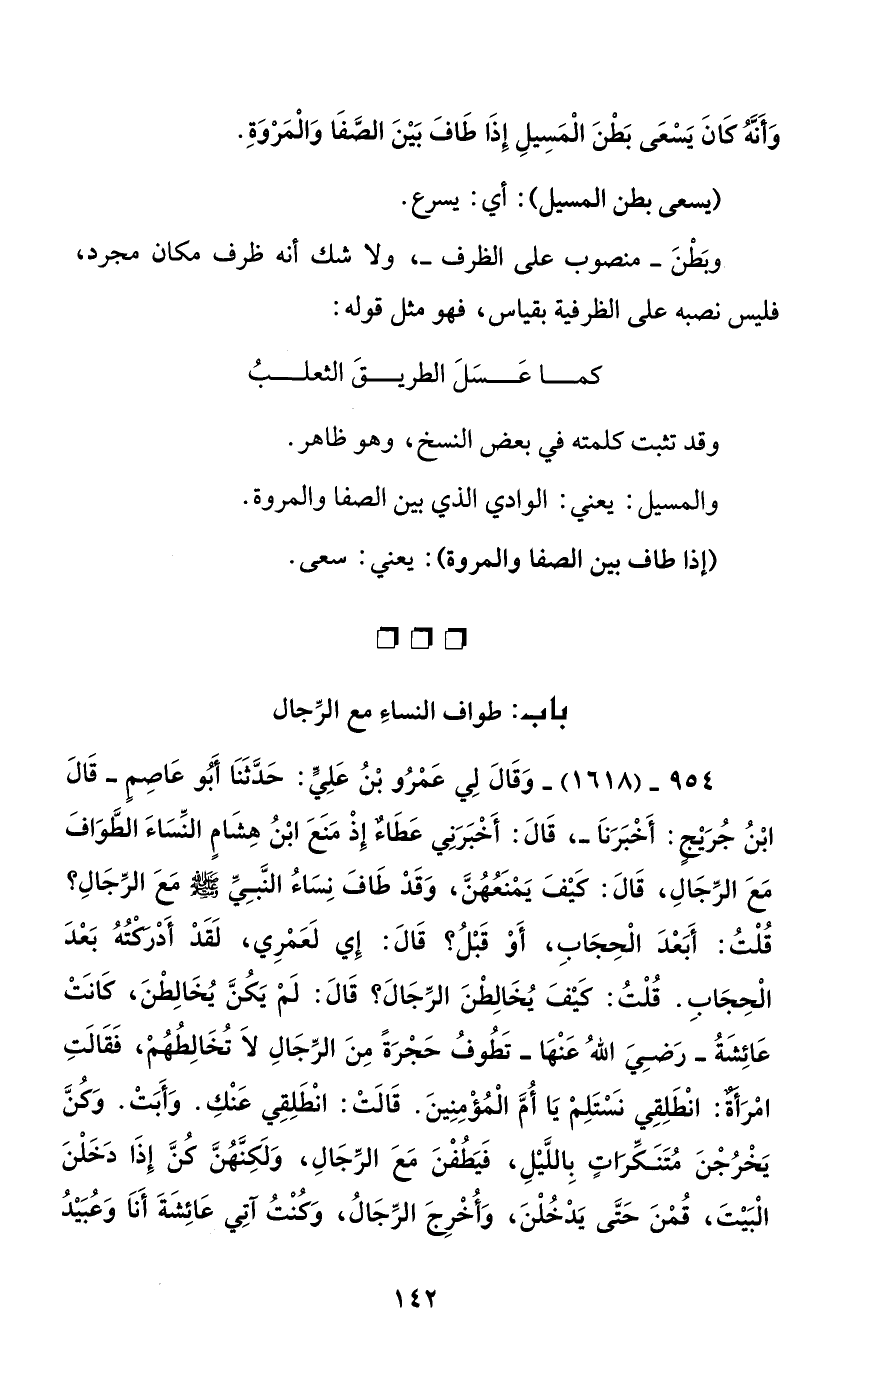 وَأَنَّهُ كَانَ يَسْعَى بَطْنَ الْمَسِيلِ إِذَا طَافَ بَيْنَ الصَّفَا وَالْمَرْوَةِ.
(يسعى بطن المسيل): أي: يسرع.
وبَطْنَ - منصوب على الظرف -، ولا شك أنه ظرف مكان مجرد،
فليس نصبه على الظرفية بقياس، فهو مثل قوله:
كمــا عَــسَلَ الطريــقَ الثعلــبُ
وقد تثبت كلمته في بعض النسخ، وهو ظاهر.
والمسيل: يعني: الوادي الذي بين الصفا والمروة.
(إذا طاف بين الصفا والمروة): يعني: سعى.
❒ ❒ ❒
باب: طواف النساءِ مع الرِّجال
٩٥٤ - (١٦١٨) - وَقَالَ لِي عَمْرُو بْنُ عَلِيٍّ: حَدَّثَنَا أَبُو عَاصِمٍ - قَالَ
ابْنُ جُرَيْجٍ: أَخْبَرَنَا -، قَالَ: أَخْبَرَنِي عَطَاءٌ إِذْ مَنَعَ ابْنُ هِشَامٍ النِّسَاءَ الطَّوَافَ
مَعَ الرِّجَالِ، قَالَ: كَيْفَ يَمْنَعُهُنَّ، وَقَدْ طَافَ نِسَاءُ النَّبِيِّ ﷺ مَعَ الرِّجَالِ؟
قُلْتُ: أَبَعْدَ الْحِجَابِ، أَوْ قَبْلُ؟ قَالَ: إِي لَعَمْرِي، لَقَدْ أَدْرَكْتُهُ بَعْدَ
الْحِجَابِ. قُلْتُ: كَيْفَ يُخَالِطْنَ الرِّجَالَ؟ قَالَ: لَمْ يَكُنَّ يُخَالِطْنَ، كَانَتْ
عَائِشَةُ - رَضِيَ اللهُ عَنْهَا - تَطُوفُ حَجْرَةً مِنَ الرِّجَالِ لاَ تُخَالِطُهُمْ، فَقَالَتِ
امْرَأَةٌ: انْطَلِقِي نَسْتَلِمْ يَا أُمَّ الْمُؤْمِنِينَ. قَالَتْ: انْطَلِقِي عَنْكِ. وَأَبَتْ. وَكُنَّ
يَخْرُجْنَ مُتَنَكِّرَاتٍ بِاللَّيْلِ، فَيَطُفْنَ مَعَ الرِّجَالِ، وَلَكِنَّهُنَّ كُنَّ إِذَا دَخَلْنَ
الْبَيْتَ، قُمْنَ حَتَّى يَدْخُلْنَ، وَأُخْرِجَ الرِّجَالُ، وَكُنْتُ آتِي عَائِشَةَ أَنَا وَعُبَيْدُ
١٤٢